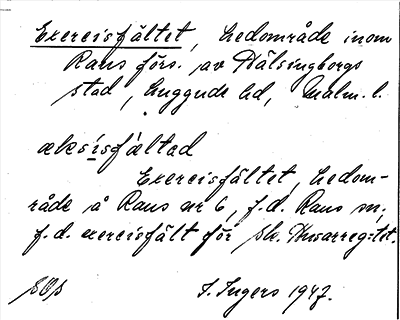 Exercisfältet, hedområde inom
Raus förs. av Hälsingborgs
stad, Luggude hd, Malm. l.
æksisfæltad
Exercisfältet, hedom-
råde å Raus nr 6, f.d. Raus m;
f.d. exercisfält för sk. Husarreg:tet.
I. Ingers 1947.